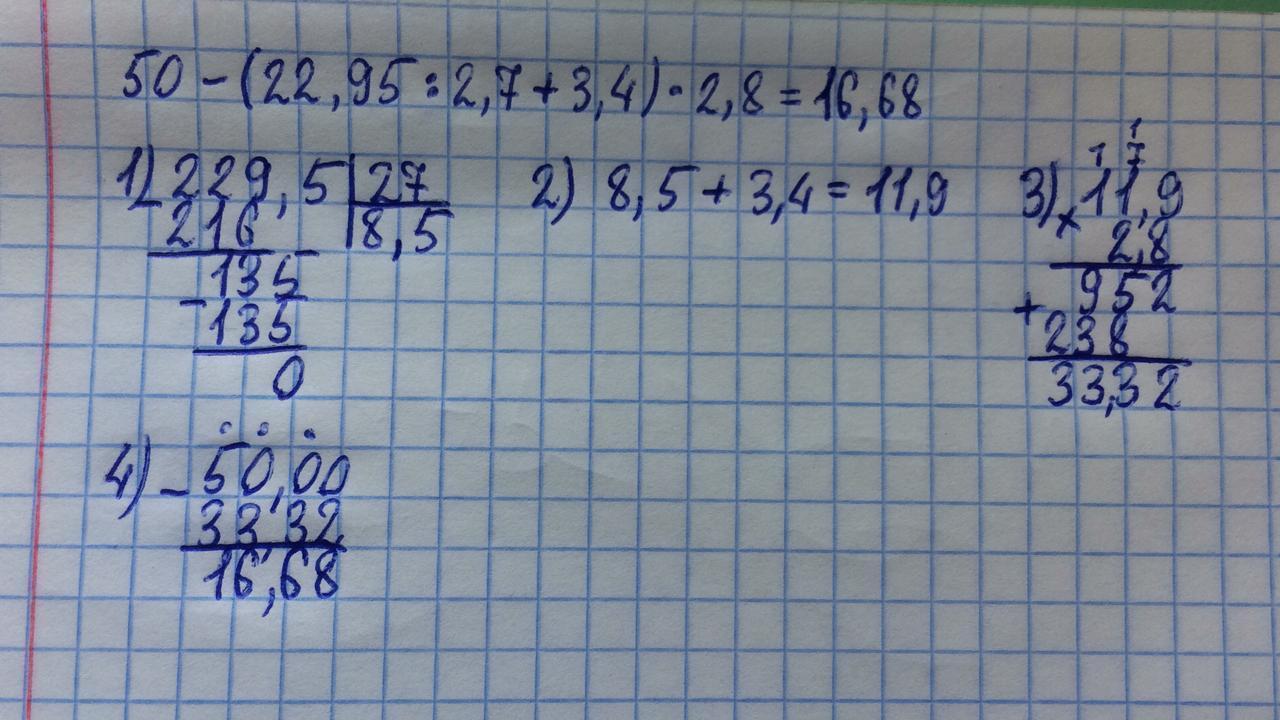 50 - (22,95 : 2,7 + 3,4) · 2,8 = 16,68
1) 229,5 | 27
- 216 | 8,5
- 135
135
0
2) 8,5 + 3,4 = 11,9
1
1 7
3) × 11,9
2,8
+ 952
238
33,32
4) - 50,00
33,32
16,68